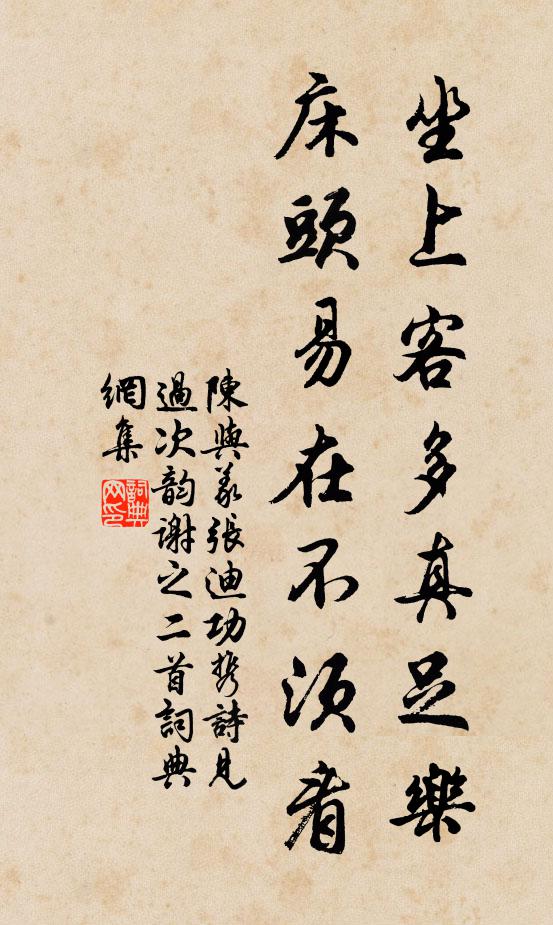 坐上客多真足樂
床頭易在不須看
陳與義張迪功携詩見
過次韵謝之二首詞典
網集
詞典
网印